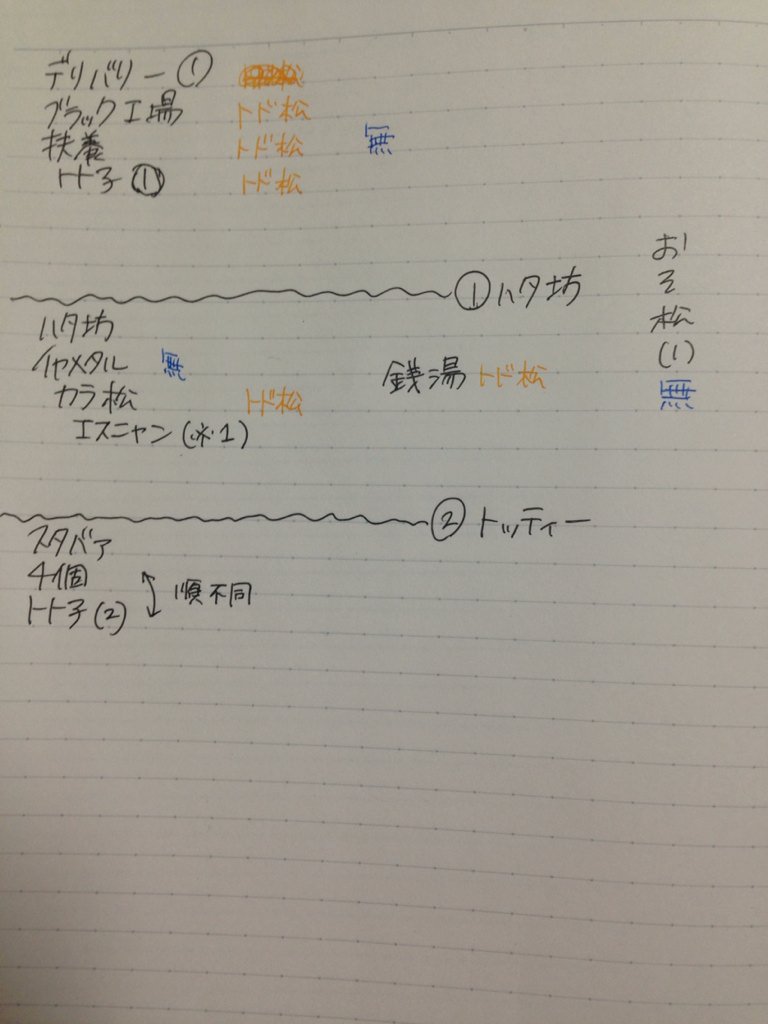 デリバリー①
ブラック工場 トド松
扶養 トド松 無
トト子① トド松
①ハタ坊
ハタ坊
イヤメタル 無
カラ松 トド松
エスニャン(※1)
銭湯 トド松
おそ松(1)無
②トッティー
スタバァ
4個
トト子(2)
順不同